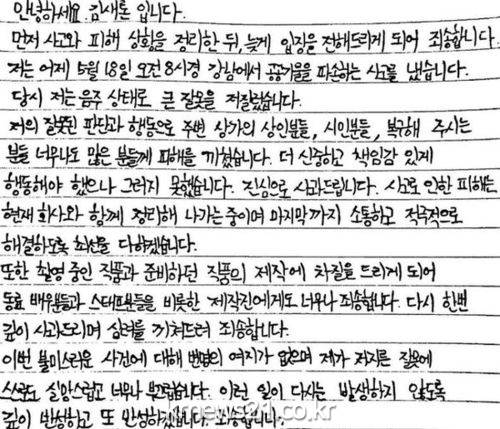 안녕하세요. 김새론 입니다.
먼저 사고와 피해 상황을 정리한 뒤, 늦게 입장을 전해드리게 되어 죄송합니다.
저는 어제 5월 18일 오전 8시경 강남에서 공공기물을 파손하는 사고를 냈습니다.
당시 저는 음주 상태로 큰 잘못을 저질렀습니다.
저의 잘못된 판단과 행동으로 주변 상가의 상인분들, 시민분들, 복구해 주시는
분들 너무나도 많은 분들께 피해를 끼쳤습니다. 더 신중하고 책임감 있게
행동해야 했으나 그러지 못했습니다. 진심으로 사과드립니다. 사고로 인한 피해는
현재 회사와 함께 정리해 나가는 중이며 마지막까지 소통하고 적극적으로
해결하도록 최선을 다하겠습니다.
또한 촬영 중인 작품과 준비하던 작품의 제작에 차질을 드리게 되어
동료 배우분들과 스태프분들을 비롯한 제작진에게도 너무나 죄송합니다. 다시 한번
깊이 사과드리며 심려를 끼쳐드려 죄송합니다.
이번 불미스러운 사건에 대해 변명의 여지가 없으며 제가 저지른 잘못에
스스로도 실망스럽고 너무나 부끄럽습니다. 이런 일이 다시는 발생하지 않도록
깊이 반성하고 또 반성하겠습니다. 죄송합니다.
knews21.co.kr